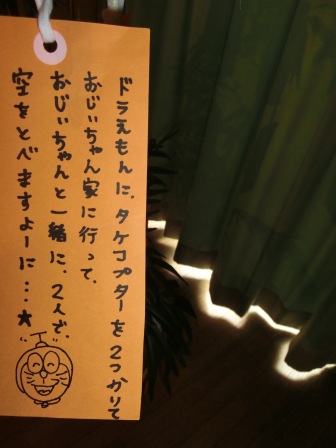 ドラえもんに、タケコプターを2つかりて
おじぃちゃん家に行って、
おじぃちゃんと一緒に、2人で、
空をとべますよーに…★